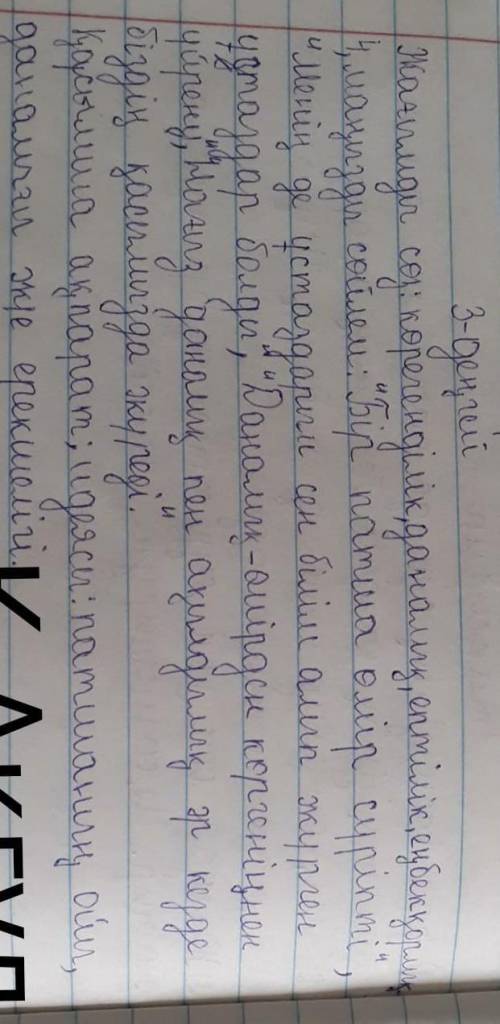 3-деңгей
Жағымды сөз: көрегенділік, даналық, ептілік, еңбекқорлық
4, маңызды сөйлем: "Бір патша өмір сүріпті",
"Менің де ұстаздарым сен білім алып жүрген
ұстаздар болды", "Даналық-өмірден көргеніңнен
үйрену", "Нағыз даналық пен ақылдылық әр кезде
біздің қасымызда жүреді."
Қосымша ақпарат; идеясы: патшаның ойы,
даналығы және ерекшелігі.
К АКГУЛ